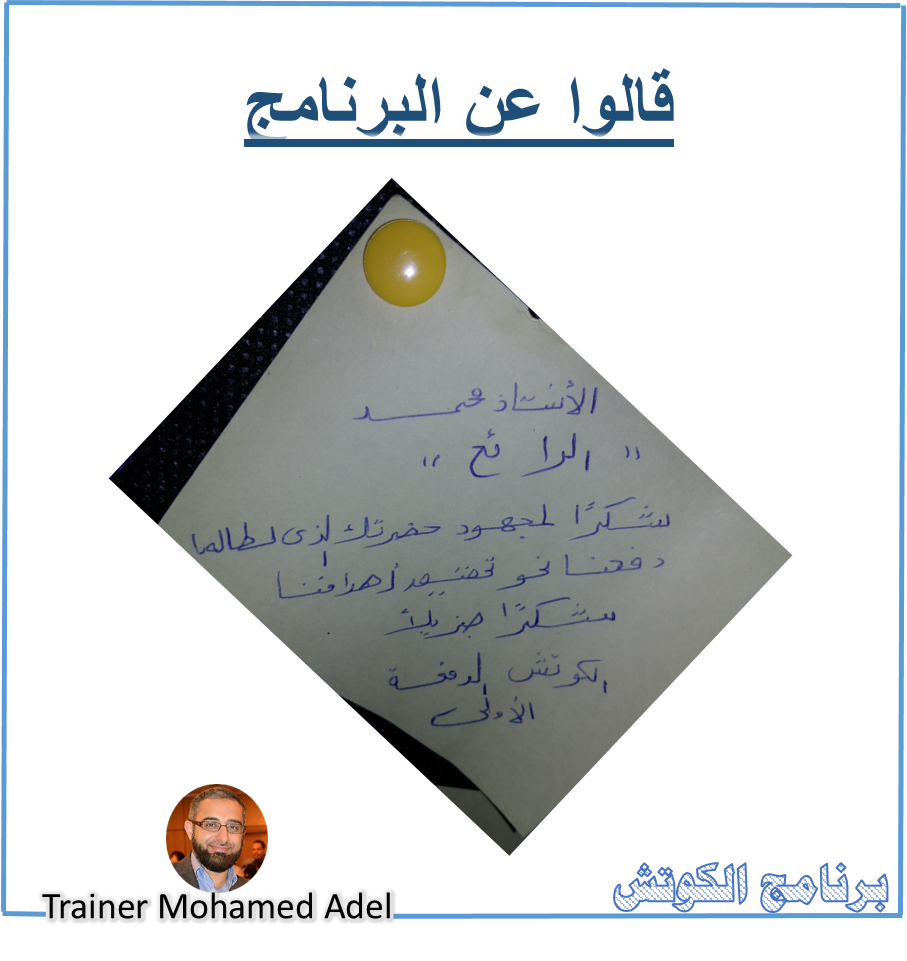 قالوا عن البرنامج
الأستاذ محمد
" الرائع "
شكرًا لمجهود حضرتك الذى لطالما
دفعنا نحو تحقيق أهدافنا
شكرًا جزيلاً
الكوتش الدفعة
الأولى
برنامج الكوتش
Trainer Mohamed Adel